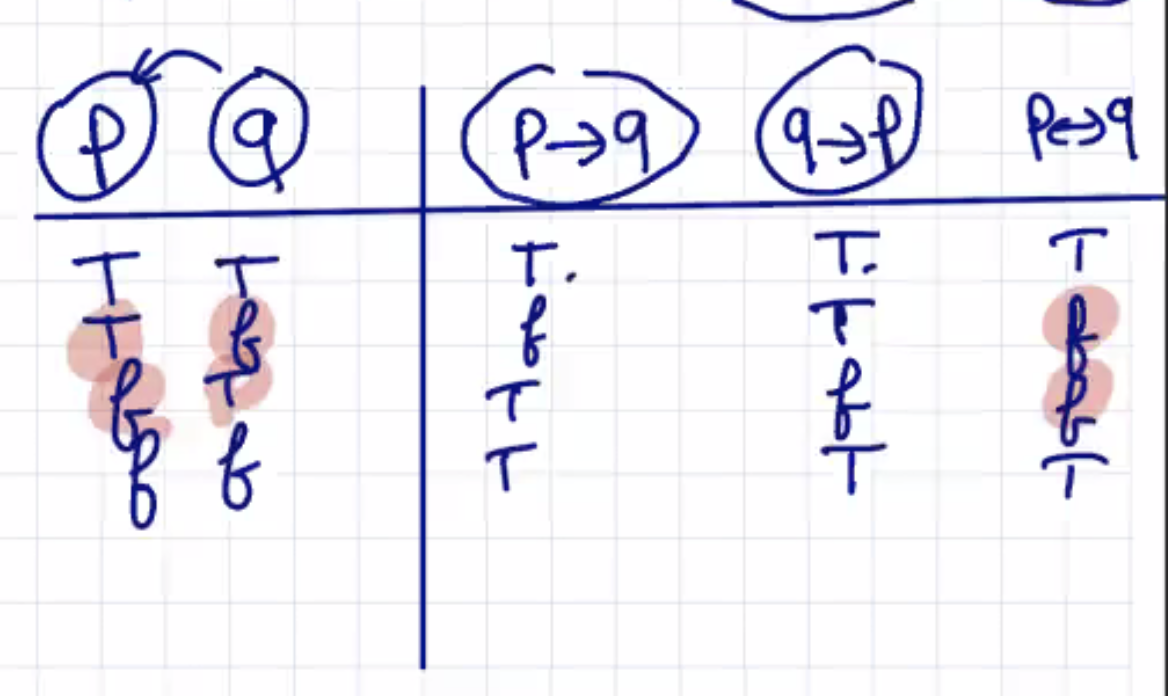 p q p→q q→p p↔q
T T T. T. T
T f f T f
f T T f f
f f T T T